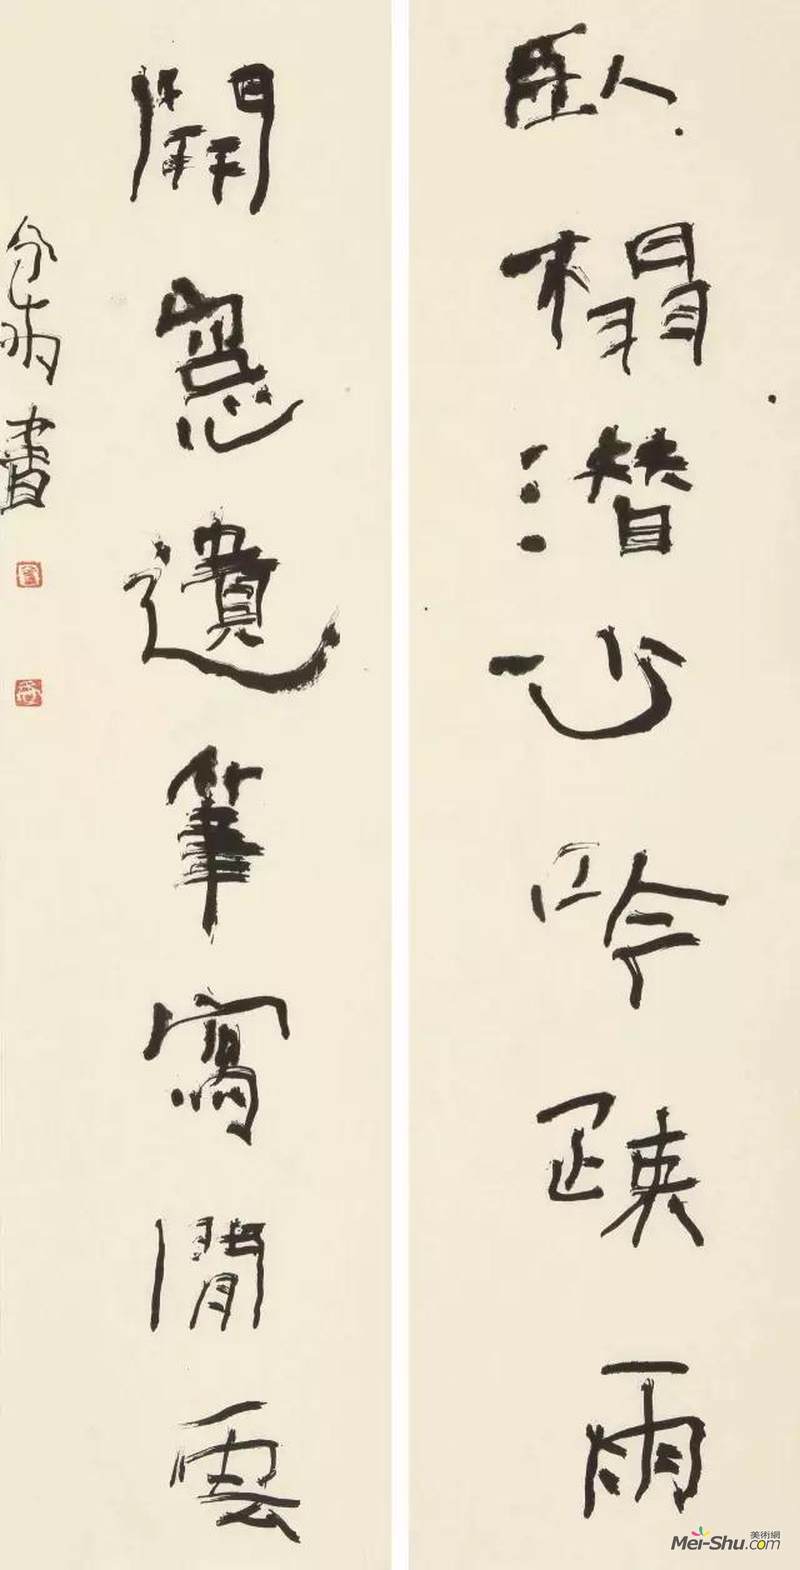 臥榻潛心吟疎雨
開窻遺筆寫閒雲
書
美術網
Mei-Shu.com